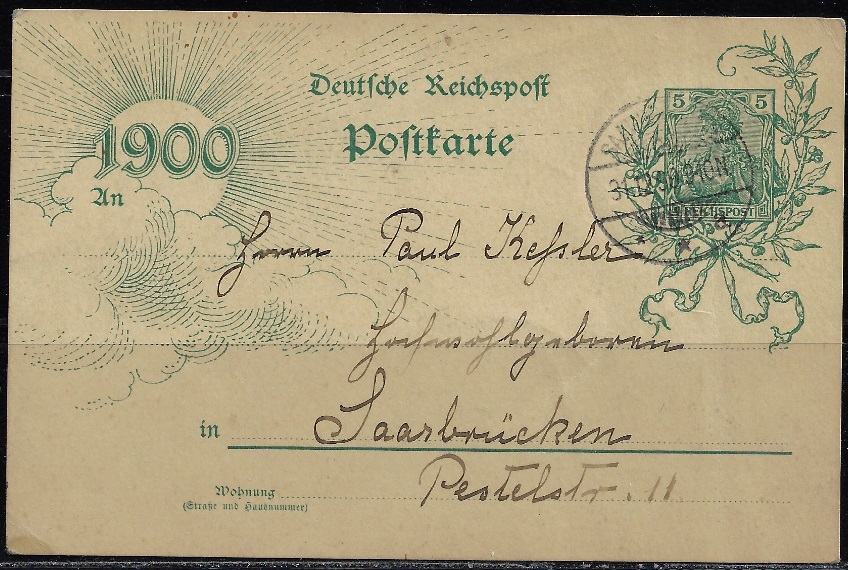 Deutsche Reichspost
Postkarte
5 5
REICHSPOST
1900
An
Herrn Paul Kessler
Hochwohlgeboren
in Saarbrücken
Pestelstr. 11
Wohnung
(Straße und Hausnummer)